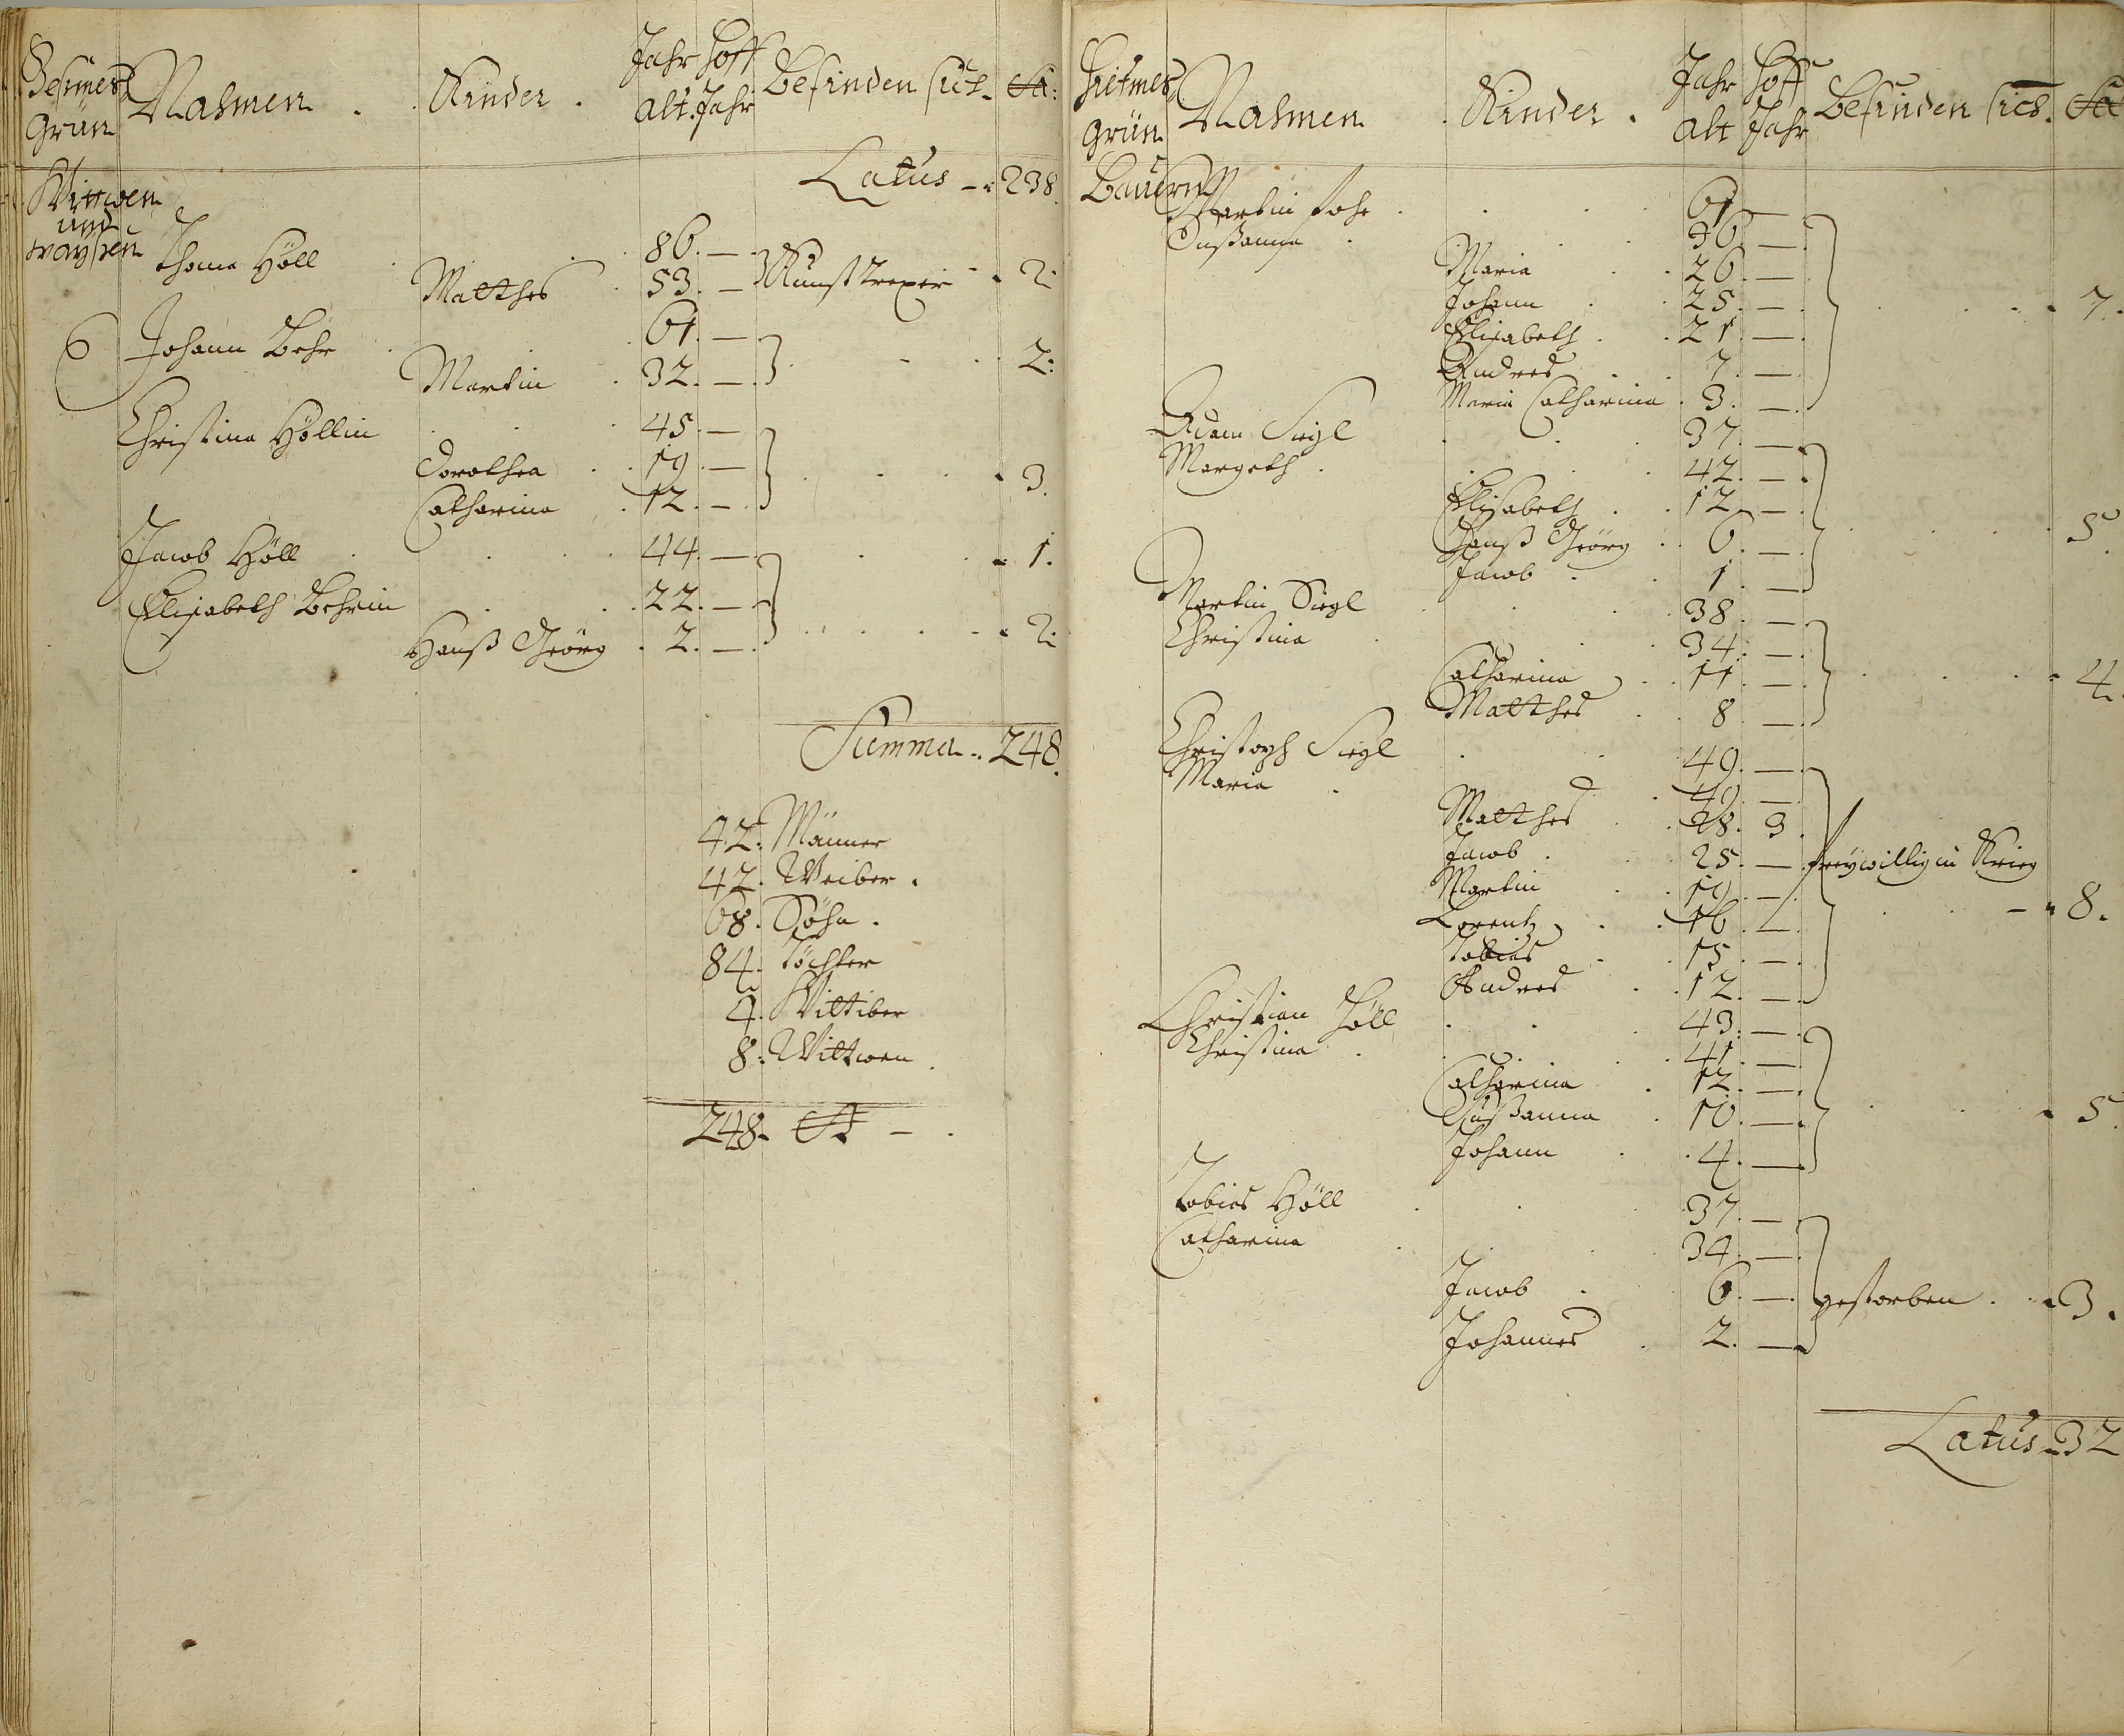 Grün Nahmen . Kinder . Jahr alt. Hoff Jahr Befinden sich
Latus - 238.
Wittwen
und
waysen
Thoma Höll . 86. —
Matthes 53. — 2.
6 Johann Behr . 61. —
Martin . 32. — . 2.
Christina Höllin . 45. —
Dorothea . . 19. —
Catharina . 12. — . 3.
Jacob Höll . 44. — . 1.
Elisabeth Behrin . 22. —
Hanß Geörg . 2. — . 2.
Summa .. 248.
42. Männer
42. Weiber .
68. Söhn .
84. Töchter
4. Wittiber
8. Wittwen .
248.

Grün Nahmen . Kinder . Jahr alt Hoff Jahr Befinden sich.
Bauern
Martin . 61 —
Sußanna . 56. —
Maria . 26. —
Johann . 25. — . 7.
Elisabeth . . 21. —
Andres . 7. —
Maria Catharina . 3. —
Adam Siegl . 37. —
Margeth . 42. —
Elisabeth . . 12. —
Hanß Geörg . . 6. — . 5.
Jacob . 1. —
Martin Siegl . 38. —
Christina . 34. —
Catharina . . 11. — . 4.
Matthes . 8. —
Christoph Siegl . 49. —
Maria . 49. —
Matthes . 28. 3.
Jacob . 25. — freywillig in Krieg
Martin . 19. — . 8.
Lorentz . . 16. —
Tobias . . 15. —
Andres . . 12. —
Christian Höll . 43. —
Christina . 41. —
Catharina . 12. —
Sußanna . 10. — . 5.
Johann . 4. —
Tobias Höll . 37. —
Catharina . 34. —
Jacob . 6. — gestorben . . 3.
Johannes . 2. —
Latus . 32